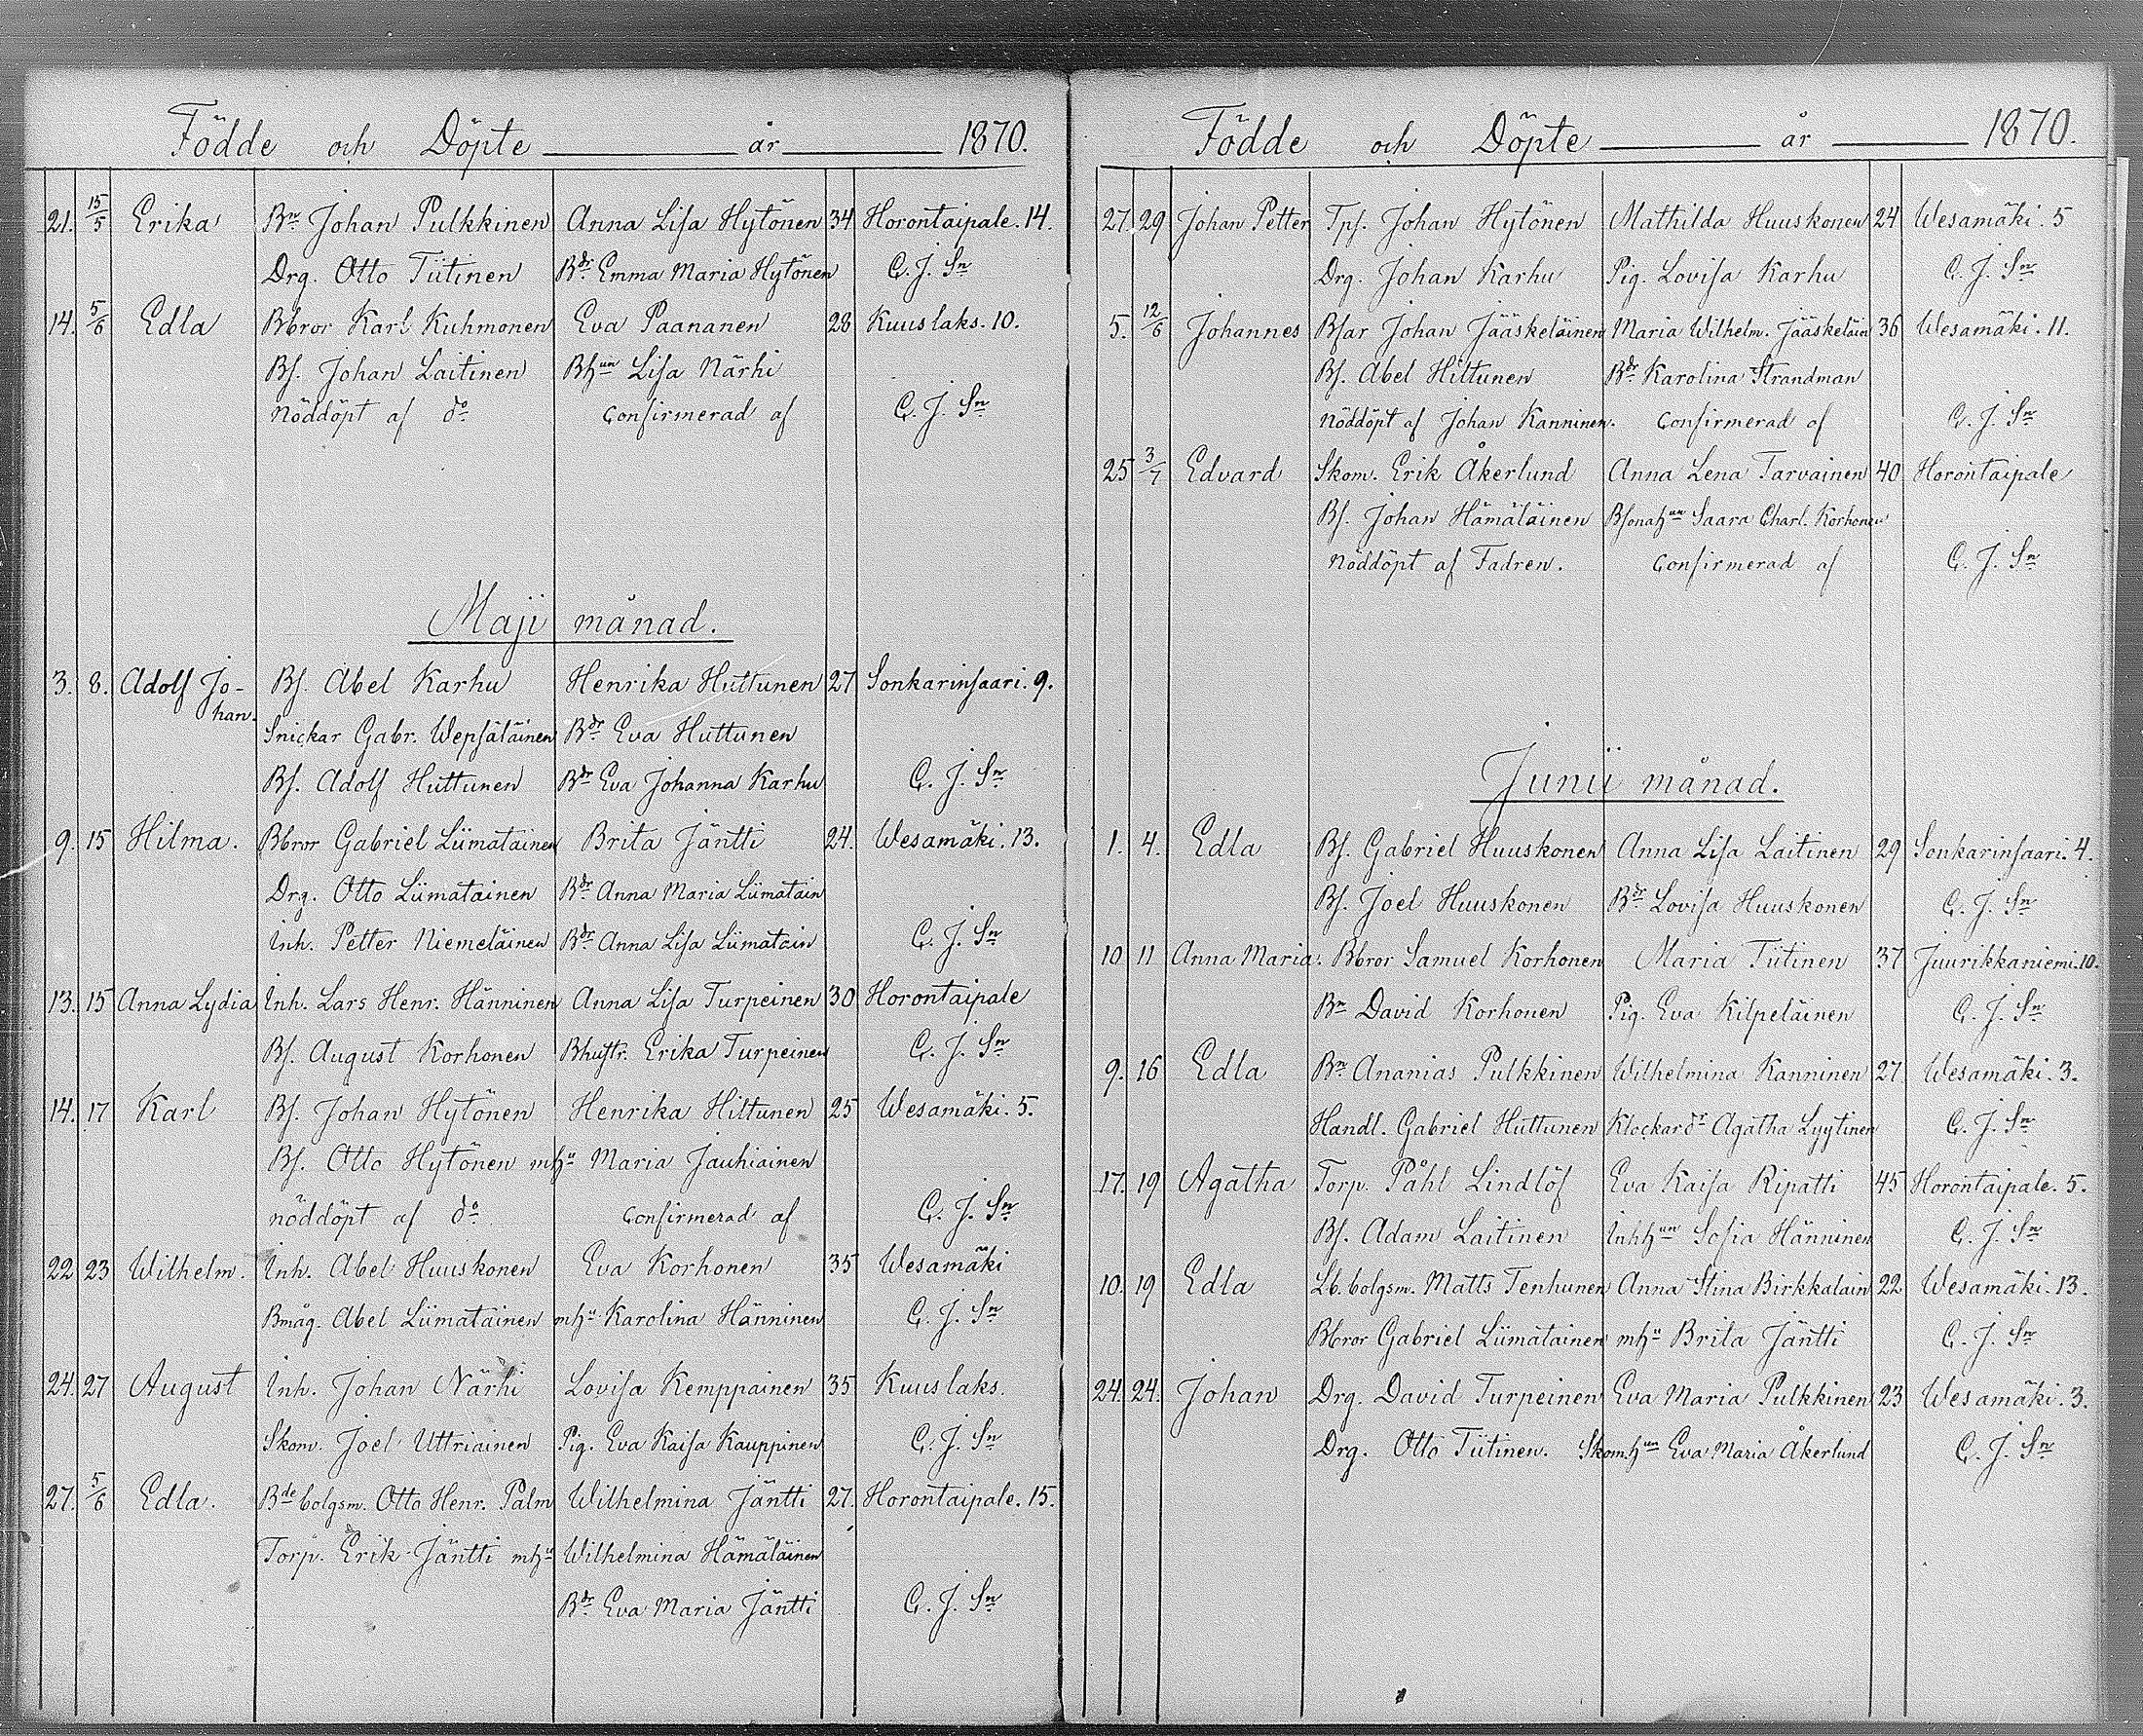 Födde och Döpte år 1870.
21. 15/5 Erika Bn Johan Pulkkinen Anna Lisa Hytönen 34 Horontaipale. 14.
Drg. Otto Tiitinen Bdr Emma Maria Hytönen C. J. Sn
14. 5/6 Edla Bbror Karl Kuhmonen Eva Paananen 28 Kuuslaks. 10.
Bs. Johan Laitinen Bhun Lisa Närhi
Nöddöpt af do Confirmerad af C. J. Sn
Maji månad.
3. 8. Adolf Jo- Bs. Abel Karhu Henrika Huttunen 27 Sonkarinsaari. 9.
han. Snickar Gabr. Wepsäläinen Bdr Eva Huttunen
Bs. Adolf Huttunen Bdr Eva Johanna Karhu C. J. Sn
9. 15 Hilma. Bbror Gabriel Liimatainen Brita Jäntti 24. Wesamäki. 13.
Drg. Otto Liimatainen Bdr Anna Maria Liimatain
Inh. Petter Niemeläinen Bdr Anna Lisa Liimatain C. J. Sn
13. 15 Anna Lydia Inh. Lars Henr. Hänninen Anna Lisa Turpeinen 30 Horontaipale
Bs. August Korhonen Bhustr. Erika Turpeinen C. J. Sn
14. 17 Karl Bs. Johan Hytönen Henrika Hiltunen 25 Wesamäki. 5.
Bs. Otto Hytönen mhu Maria Jauhiainen
nöddöpt af do Confirmerad af C. J. Sn
22 23 Wilhelm. Inh. Abel Huuskonen Eva Korhonen 35 Wesamäki
Bmåg. Abel Liimatainen mhu Karolina Hänninen C. J. Sn
24. 27 August Inh. Johan Närhi Lovisa Kemppainen 35 Kuuslaks.
Skom. Joel Uttriainen Pig. Eva Kaisa Kauppinen C. J. Sn
27. 5/6 Edla. Bde bolgsm. Otto Henr. Palm Wilhelmina Jäntti 27. Horontaipale. 15.
Torp. Erik Jäntti mhu Wilhelmina Hämäläinen
Bdr Eva Maria Jäntti C. J. Sn
Födde och Döpte år 1870.
27. 29 Johan Petter Tps. Johan Hytönen Mathilda Huuskonen 24 Wesamäki. 5
Drg. Johan Karhu Pig. Lovisa Karhu C. J. Sn
5. 12/6 Johannes Bfar Johan Jääskeläinen Maria Wilhelm. Jääskeläin 36 Wesamäki. 11.
Bs. Abel Hiltunen Bdr Karolina Strandman
Nöddöpt af Johan Kanninen. Confirmerad af C. J. Sn
25 3/7 Edvard Skom. Erik Åkerlund Anna Lena Tarvainen 40 Horontaipale
Bs. Johan Hämäläinen Bsonahun Saara Charl. Korhonen
Nöddöpt af Fadren. Confirmerad af C. J. Sn
Junii månad.
1. 4. Edla Bs. Gabriel Huuskonen Anna Lisa Laitinen 29 Sonkarinsaari. 4.
Bs. Joel Huuskonen Bdr Lovisa Huuskonen C. J. Sn
10 11 Anna Maria. Bbror Samuel Korhonen Maria Tiitinen 37 Juurikkaniemi. 10.
Bn David Korhonen Pig. Eva Kilpeläinen C. J. Sn
9. 16 Edla Bn Ananias Pulkkinen Wilhelmina Kanninen 27 Wesamäki. 3.
Handl. Gabriel Huttunen Klockar dr Agatha Lyytinen C. J. Sn
17. 19 Agatha Torp. Påhl Lindlöf Eva Kaisa Ripatti 45 Horontaipale. 5.
Bs. Adam Laitinen Inhhun Sofia Hänninen C. J. Sn
10. 19 Edla Lb. bolgsm. Matts Tenhunen Anna Stina Birkkalain 22 Wesamäki. 13.
Bbror Gabriel Liimatainen mhu Brita Jäntti C. J. Sn
24. 24. Johan Drg. David Turpeinen Eva Maria Pulkkinen 23 Wesamäki. 3.
Drg. Otto Tiitinen. Skom.hun Eva Maria Åkerlund C. J. Sn